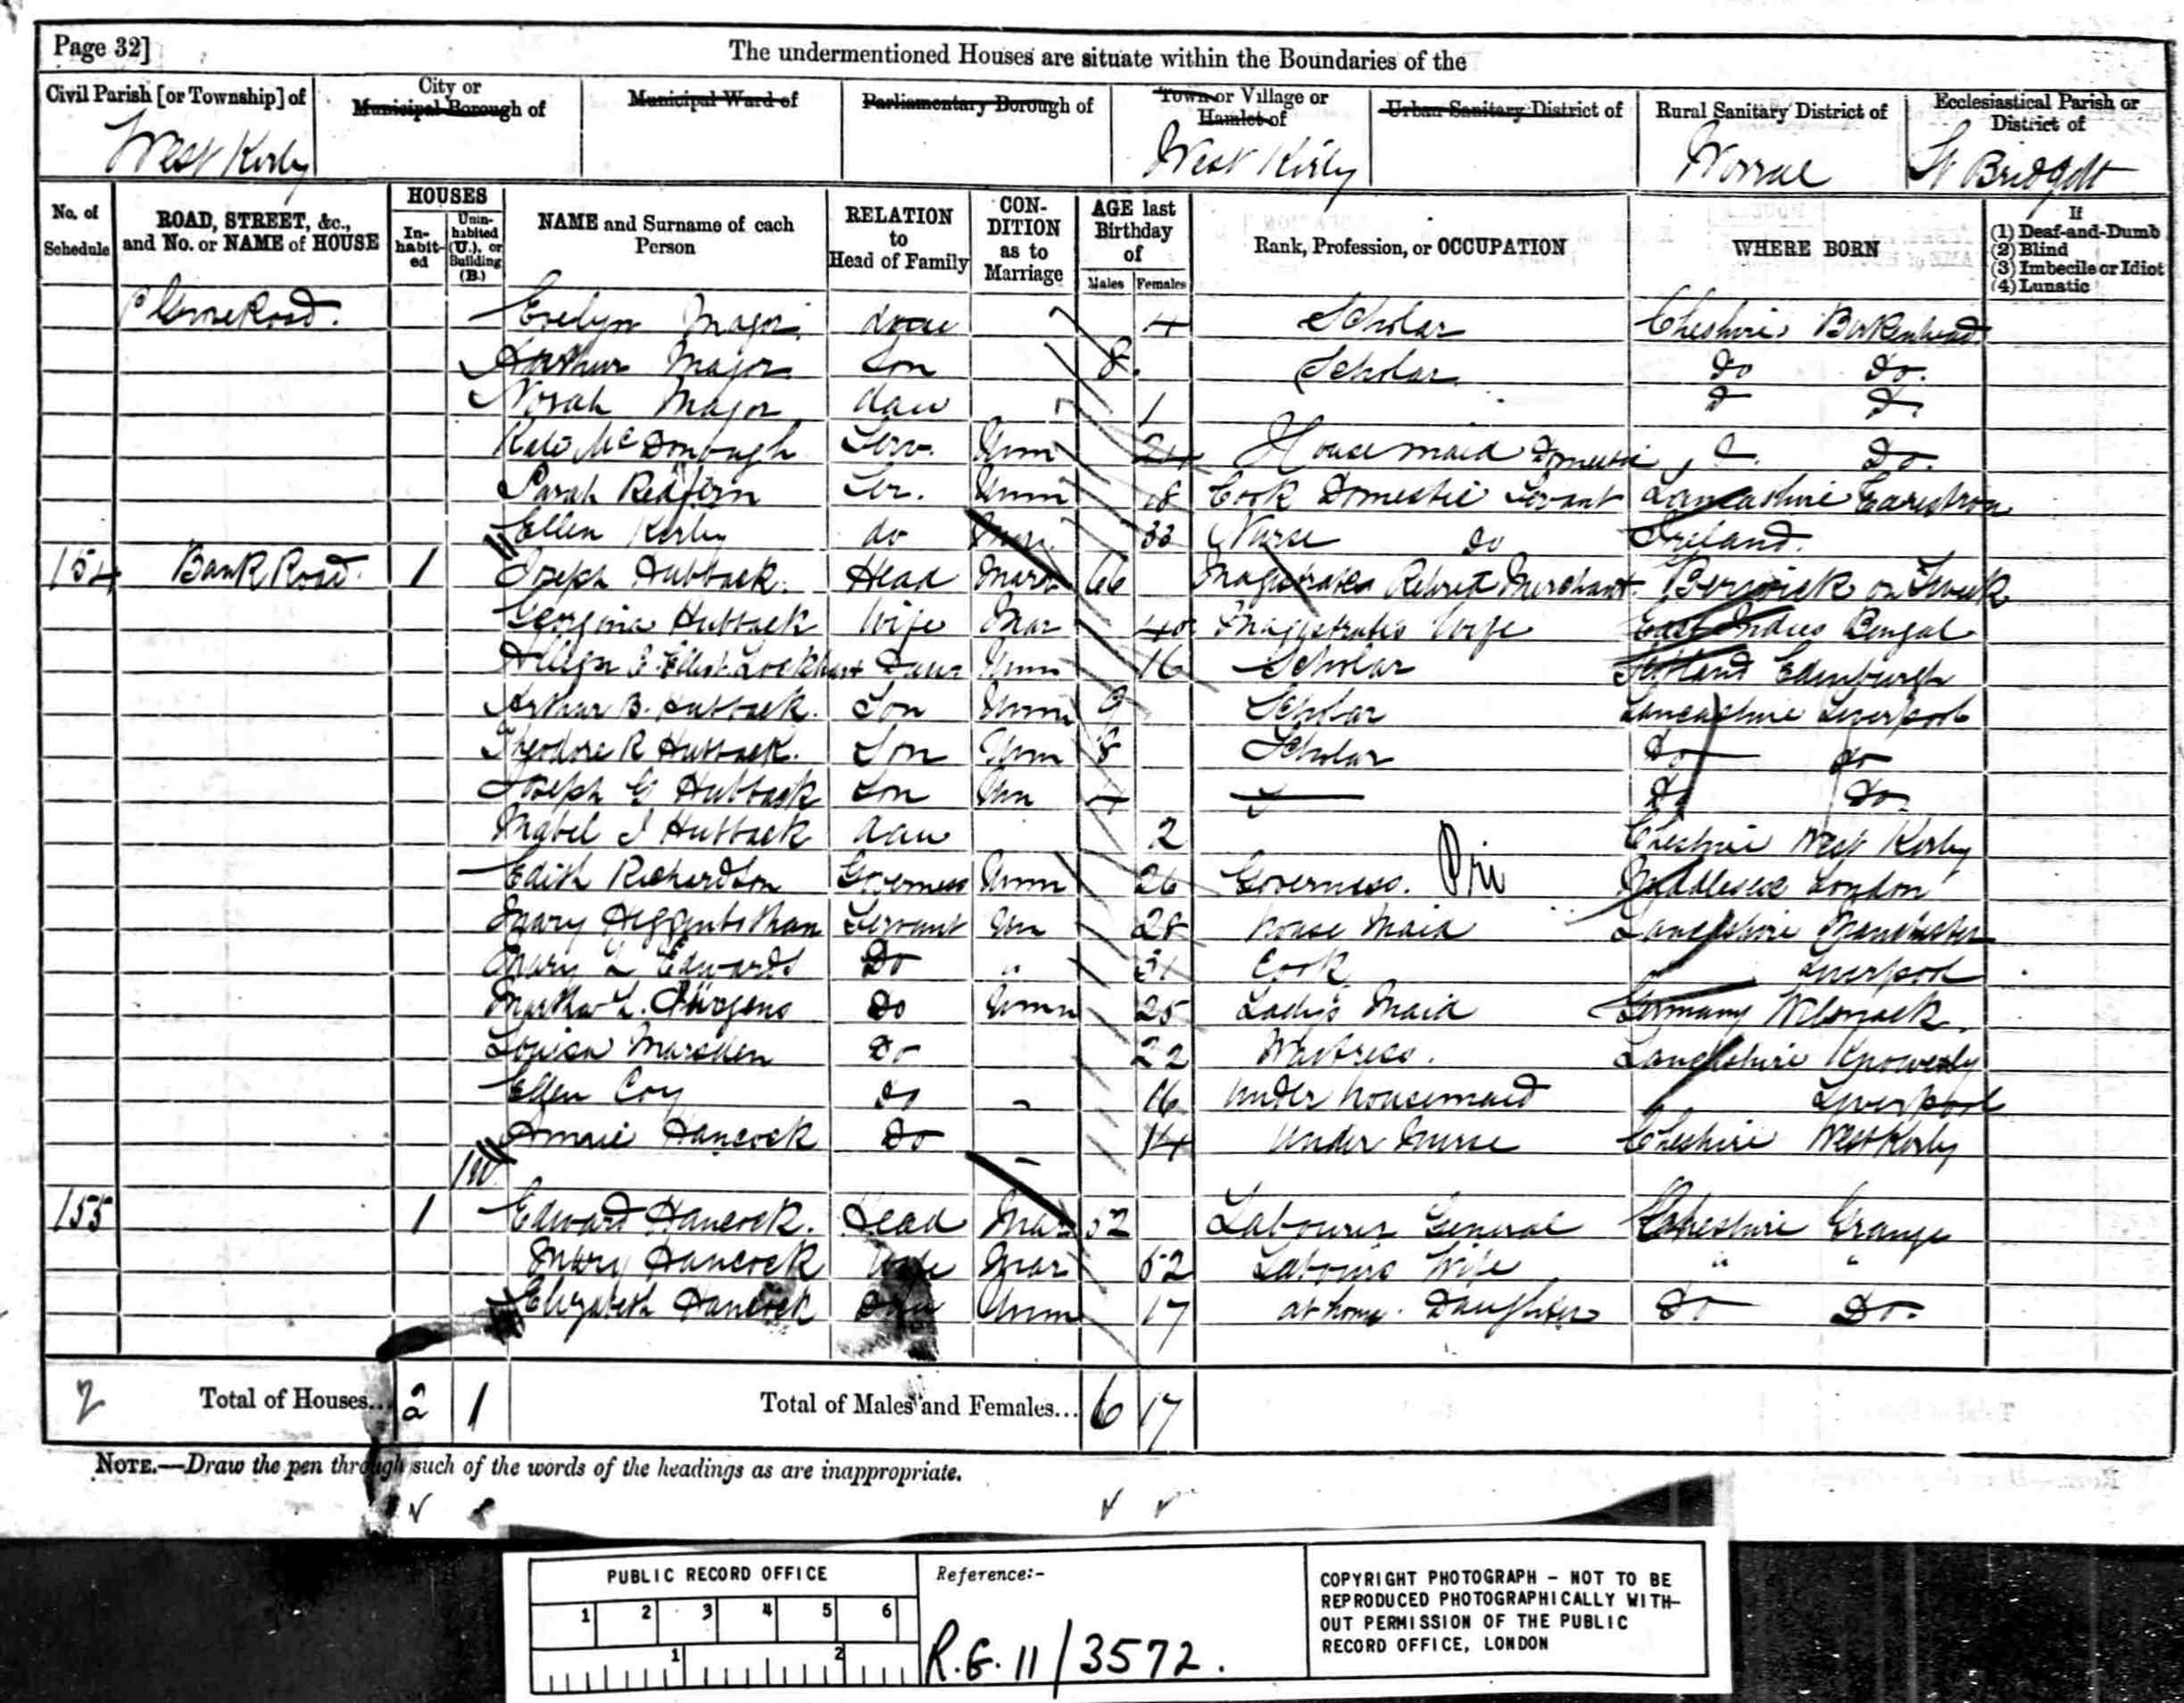 Page 32]
The undermentioned Houses are situate within the Boundaries of the
Civil Parish [or Township] of
City or Municipal Borough of
Municipal Ward of
Parliamentary Borough of
Town or Village or Hamlet of
Urban Sanitary District of
Rural Sanitary District of
Ecclesiastical Parish or District of
West Kirby West Kirby Worral St Bridgett
No. of Schedule
ROAD, STREET, &c., and No. or NAME of HOUSE
HOUSES
Inhabited
Uninhabited (U.), or Building (B.)
NAME and Surname of each Person
RELATION to Head of Family
CONDITION as to Marriage
AGE last Birthday of
Males Females
Rank, Profession, or OCCUPATION
WHERE BORN
If
(1) Deaf-and-Dumb
(2) Blind
(3) Imbecile or Idiot
(4) Lunatic
Road. Evelyn Major dau 4 Scholar Cheshire Birkenhead
Arthur Major Son 8 Scholar Do Do.
Norah Major dau 1 Do Do.
Kate McDonough Serv. Unm 24 Housemaid Domestic Do Do.
Sarah Redfern Ser. Unm 18 Cook Domestic Servant Lancashire
Ellen Kirby do 33 Nurse do Ireland.
154 Bank Road. 1 Joseph Hubback. Head Marr 66 Magistrates Retired Merchant Berwick on Tweed
Georgina Hubback Wife Mar 40 Magistrates Wife East Indies Bengal
Elliot Lockhart Daur Unm 16 Scholar Scotland Edinburgh
Arthur B. Hubback. Son Unm 9 Scholar Lancashire Liverpool
Theodore R Hubback. Son Unm 8 Scholar Do do
Joseph G Hubback Son Unn 4 Do Do
Mabel J Hubback dau 2 Cheshire West Kirby
Edith Richardson Governess Unm 26 Governess. Pri Middlesex London
Mary Servant Un 28 house Maid Lancashire Manchester
Mary L Edwards Do " 31 Cook Liverpool
Martha L. Jürgens Do Unm 25 Ladys Maid Germany Wilsnack.
Louisa Marsden Do 22 Waitress. Lancashire Knowesly
Ellen Coy do - 16 under housemaid Liverpool
Annie Hancock Do 14 Under Nurse Cheshire West Kirby
1U
155 1 Edward Hancock. Head Mar 52 Labourer General Cheshire Grange
Mary Hancock Wife Mar 52 Labours Wife " "
Elizabeth Hancock Dau Unm 17 at home. Daughter Do Do.
2 Total of Houses... 2 1 Total of Males and Females... 6 17
NOTE.—Draw the pen through such of the words of the headings as are inappropriate.
PUBLIC RECORD OFFICE
1 2 3 4 5 6
1 2
Reference:-
R.G. 11/3572.
COPYRIGHT PHOTOGRAPH – NOT TO BE
REPRODUCED PHOTOGRAPHICALLY WITH-
OUT PERMISSION OF THE PUBLIC
RECORD OFFICE, LONDON